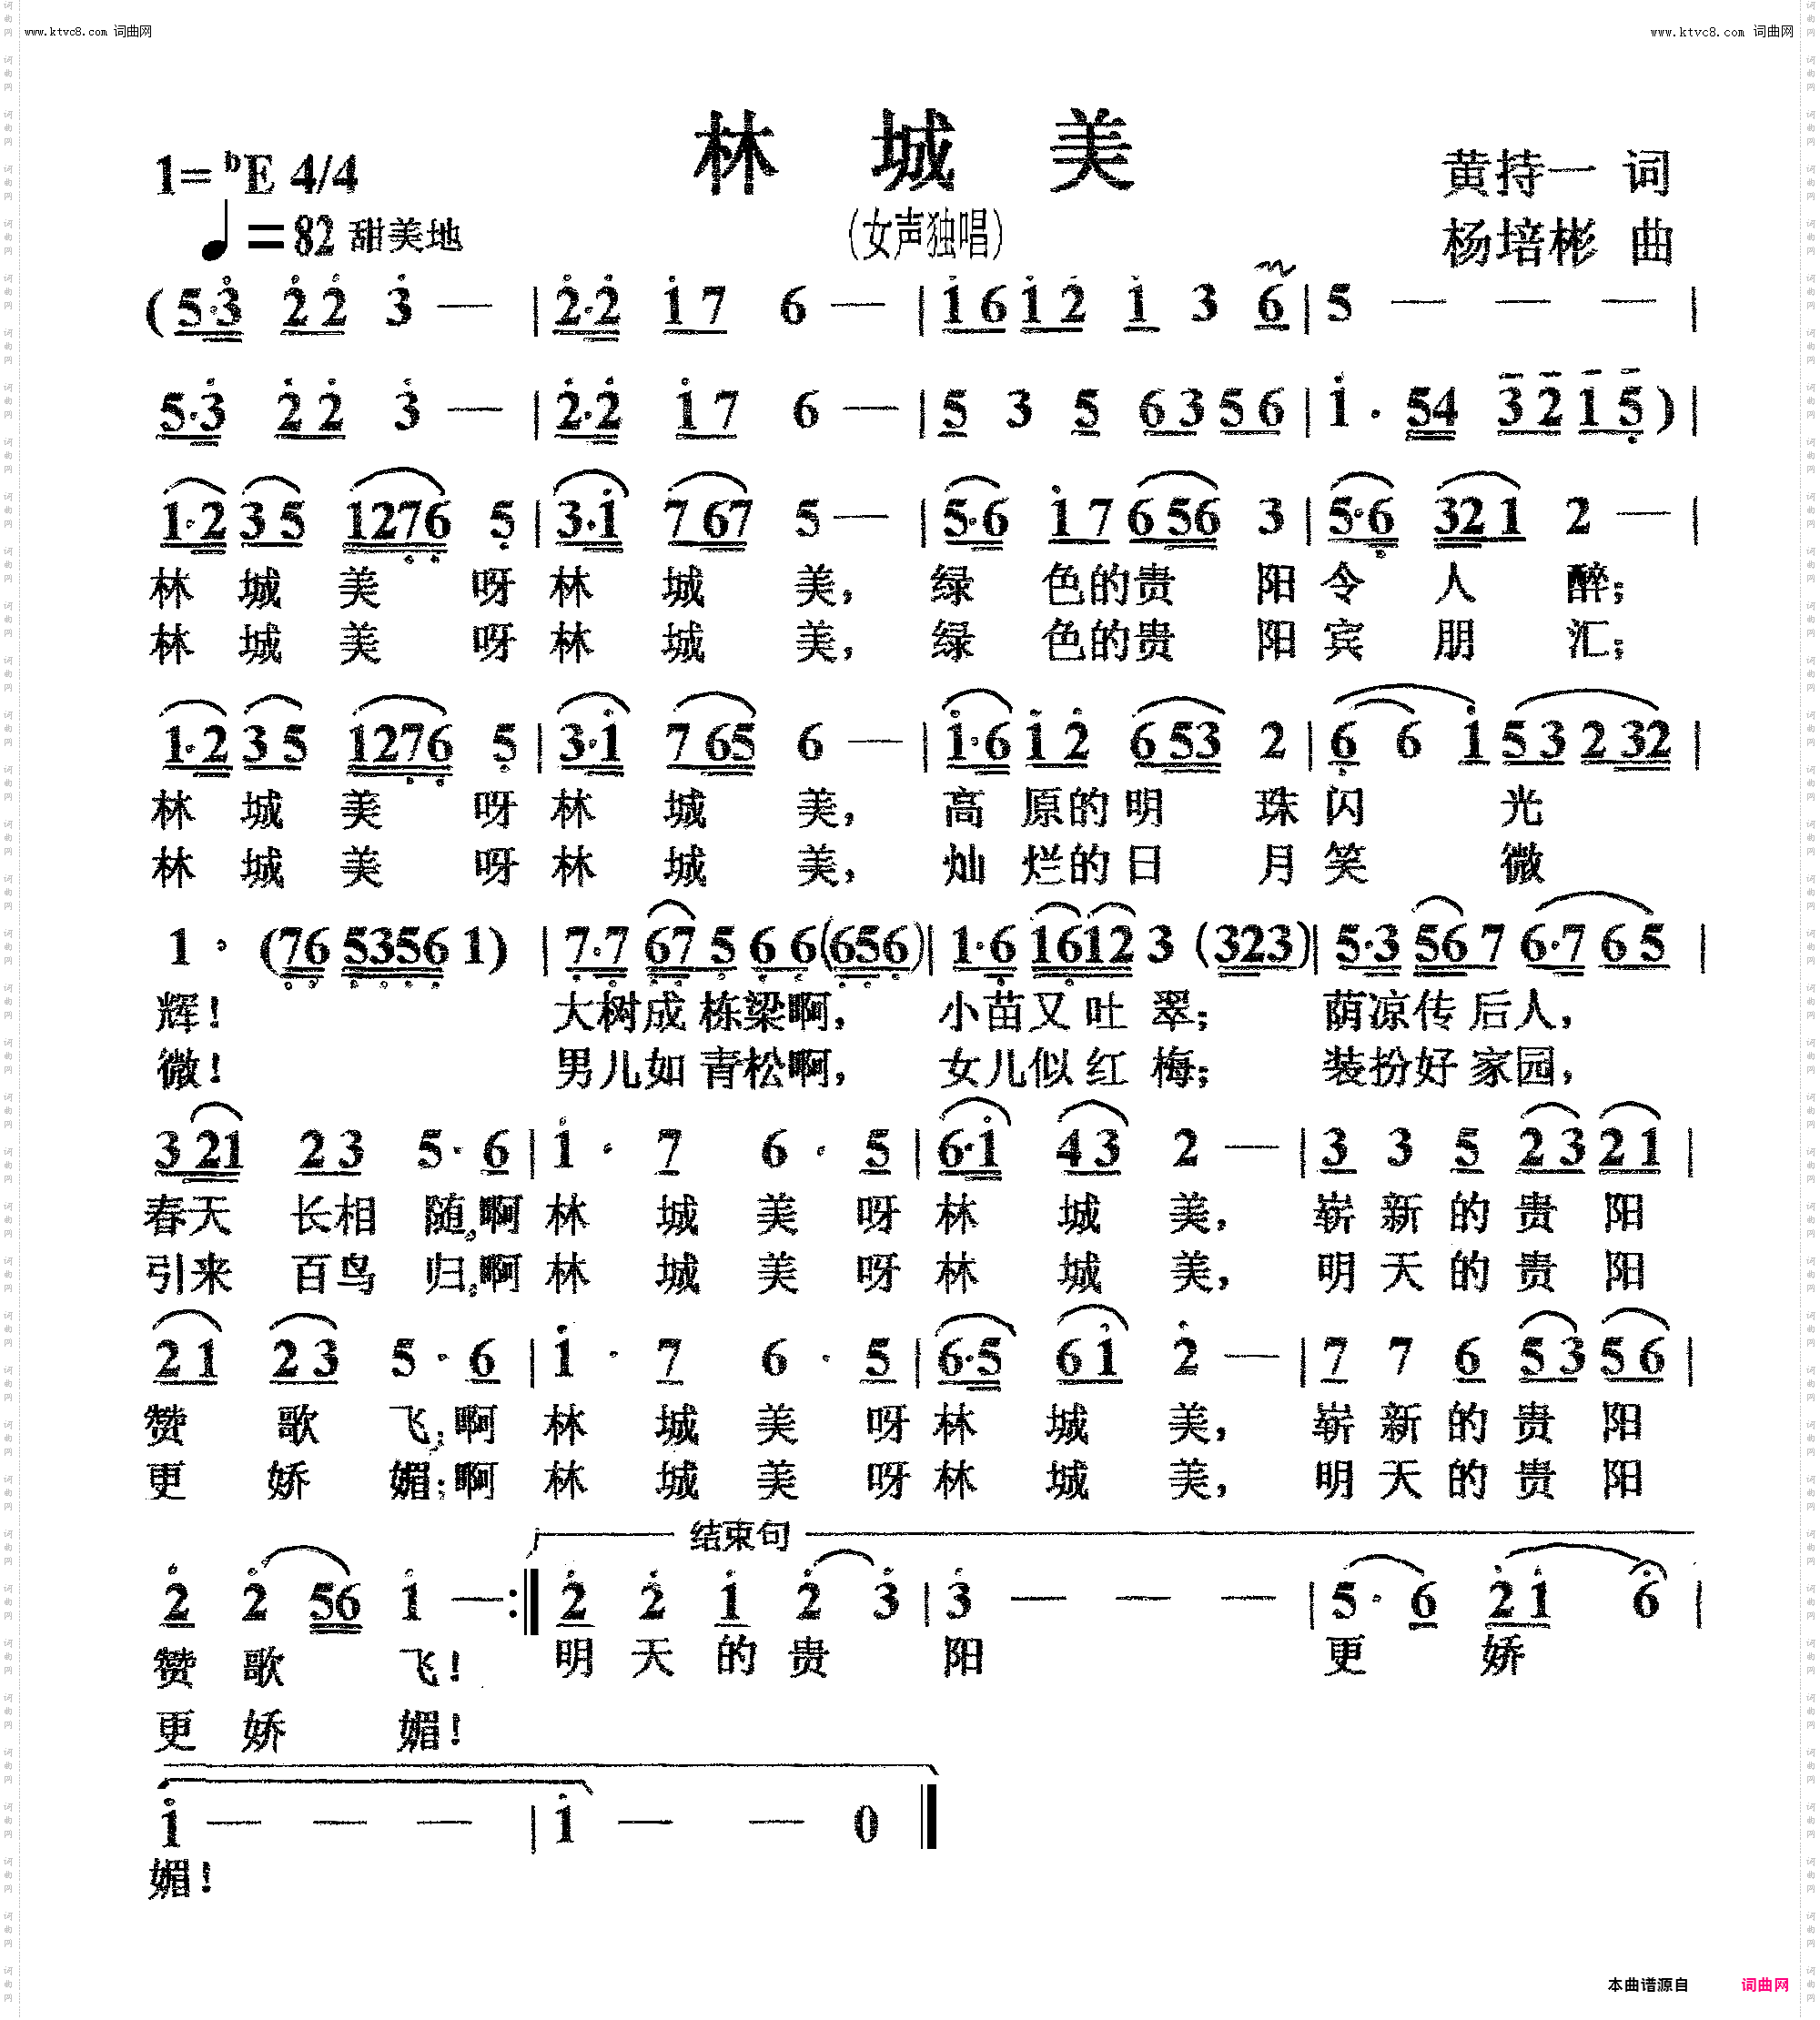 www.ktvc8.com 词曲网
www.ktvc8.com 词曲网
林 城 美
(女声独唱)
1= ᵇE 4/4
♩=82 甜美地
黄持一 词
杨培彬 曲
(5·3 2 2 3 — | 2·2 1 7 6 — | 1 6 1 2 1 3 6 | 5 — — — |
5·3 2 2 3 — | 2·2 1 7 6 — | 5 3 5 6 3 5 6 | 1 · 54 3 2 1 5 ) |
1·2 3 5 1276 5 | 3·1 7 67 5 — | 5·6 1 7 6 56 3 | 5·6 32 1 2 — |
林 城 美 呀 林 城 美, 绿 色的贵 阳 令 人 醉;
林 城 美 呀 林 城 美, 绿 色的贵 阳 宾 朋 汇;
1·2 3 5 1276 5 | 3·1 7 65 6 — | 1·6 1 2 6 53 2 | 6 6 1 5 3 2 32 |
林 城 美 呀 林 城 美, 高 原的明 珠 闪 光
林 城 美 呀 林 城 美, 灿 烂的日 月 笑 微
1 · (76 5356 1) | 7·7 67 5 6 6 (656) | 1·6 1612 3 (323) | 5·3 56 7 6·7 6 5 |
辉! 大树成 栋梁啊, 小苗又 吐 翠; 荫凉传 后人,
微! 男儿如 青松啊, 女儿似 红 梅; 装扮好 家园,
3 21 2 3 5 · 6 | 1 · 7 6 · 5 | 6·1 4 3 2 — | 3 3 5 2 3 2 1 |
春天 长相 随。啊 林 城 美 呀 林 城 美, 崭 新 的 贵 阳
引来 百鸟 归。啊 林 城 美 呀 林 城 美, 明 天 的 贵 阳
2 1 2 3 5 · 6 | 1 · 7 6 · 5 | 6·5 6 1 2 — | 7 7 6 5 3 5 6 |
赞 歌 飞; 啊 林 城 美 呀 林 城 美, 崭 新 的 贵 阳
更 娇 媚; 啊 林 城 美 呀 林 城 美, 明 天 的 贵 阳
结束句
2 2 56 1 — :‖ 2 2 1 2 3 | 3 — — — | 5 · 6 2 1 6 |
赞 歌 飞! 明 天 的 贵 阳 更 娇
更 娇 媚!
1 — — — | 1 — — 0 ‖
媚!
本曲谱源自 词曲网